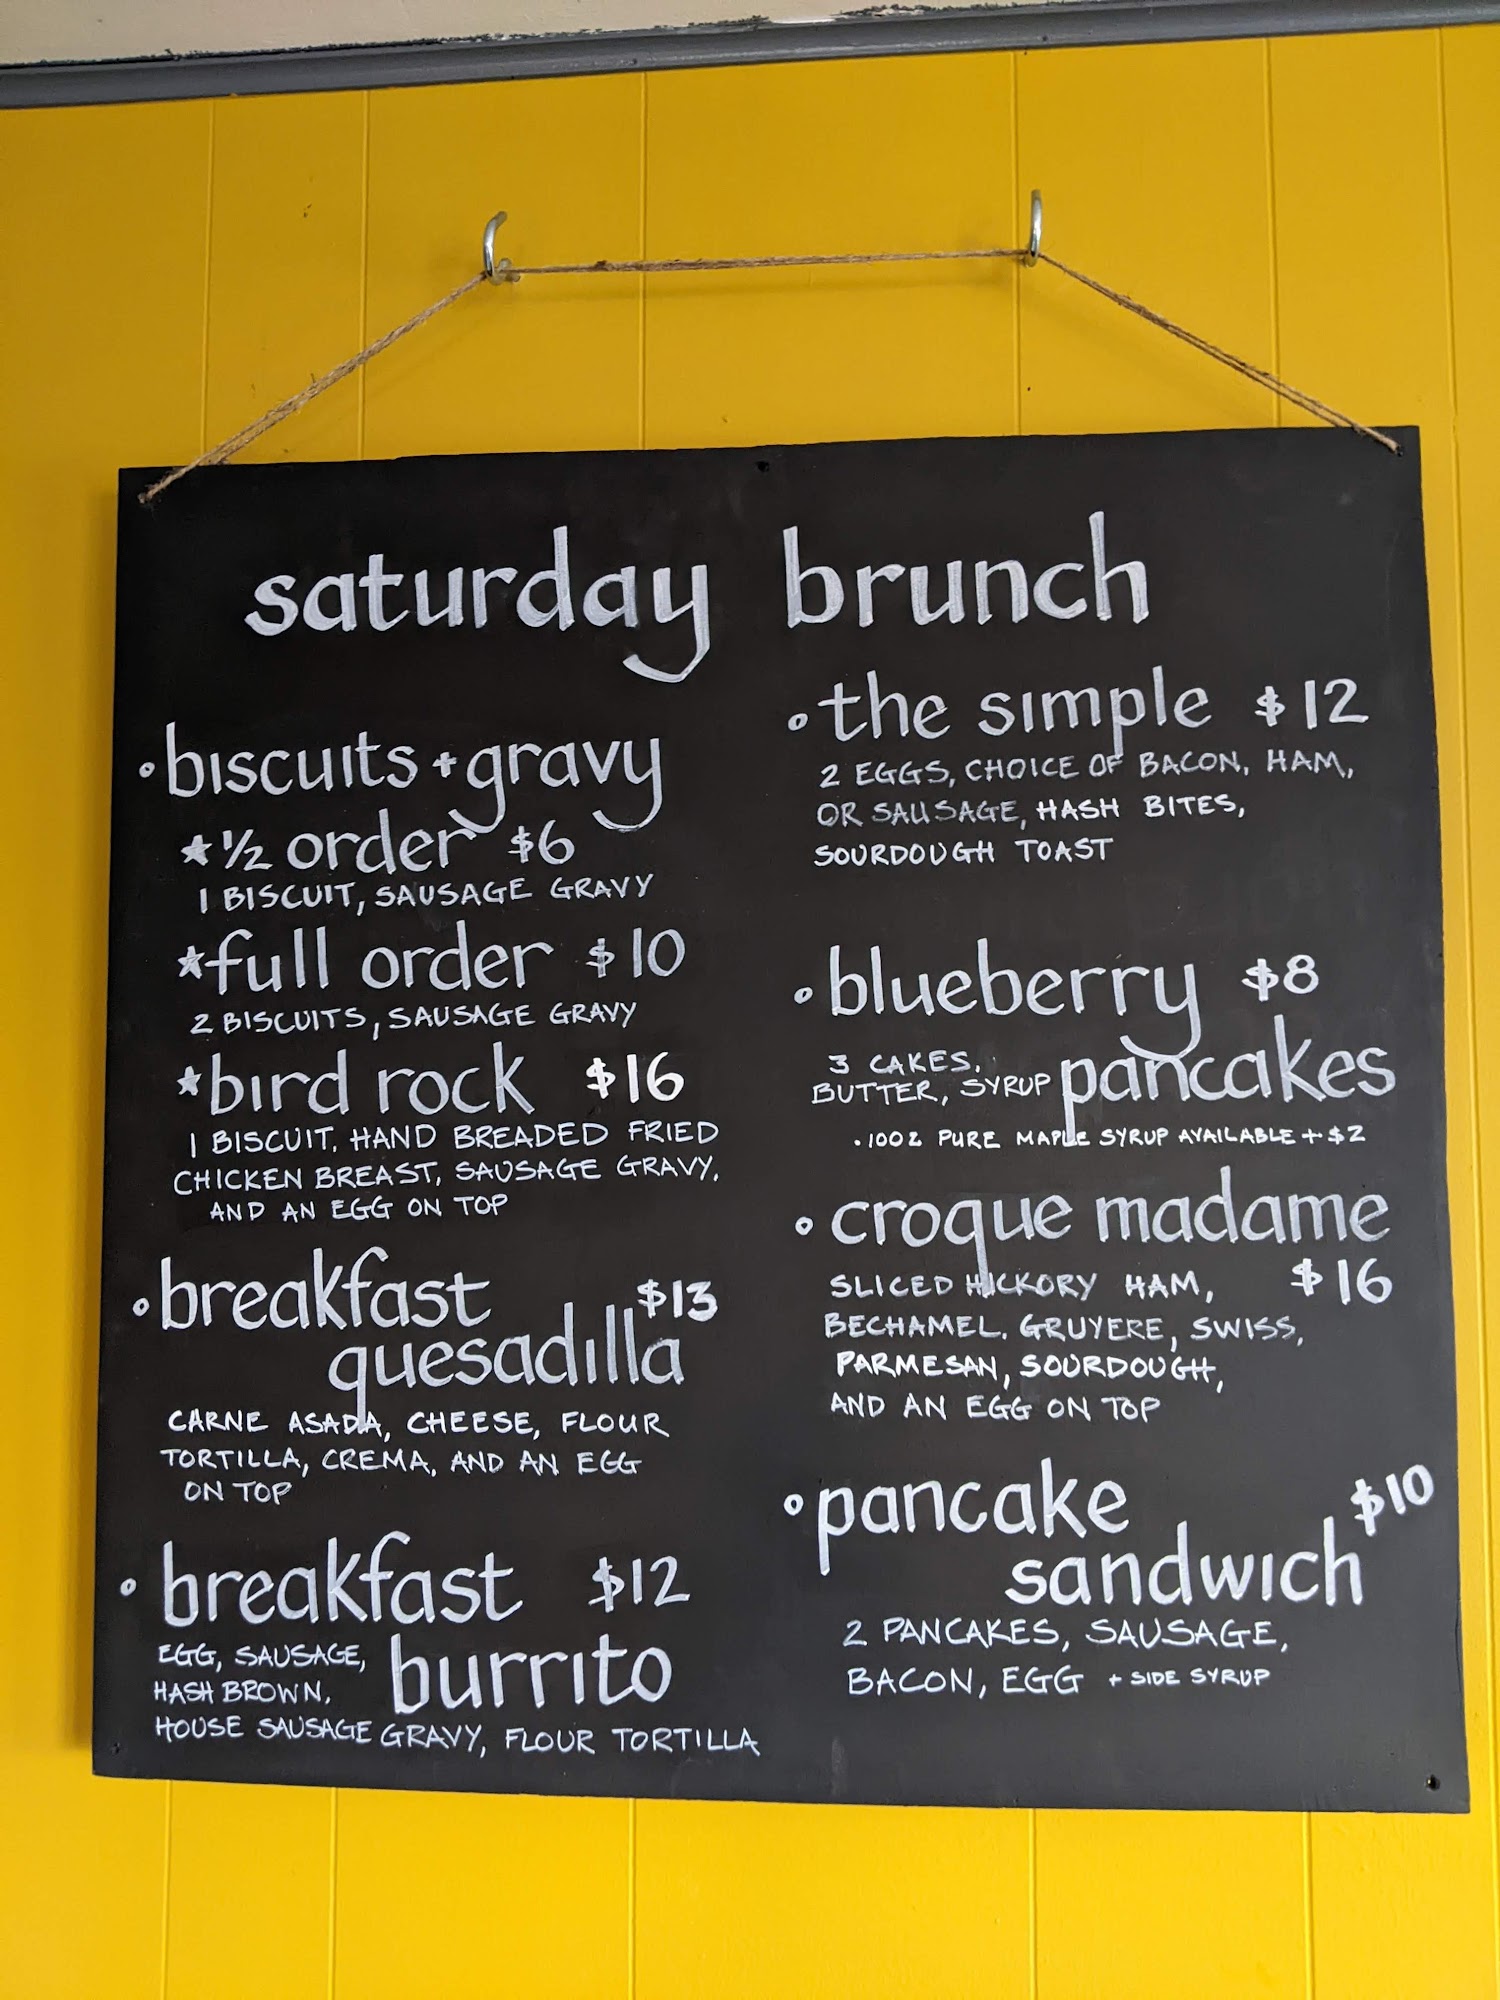 saturday brunch
• biscuits + gravy
★ 1/2 order $6
1 BISCUIT, SAUSAGE GRAVY
★ full order $10
2 BISCUITS, SAUSAGE GRAVY
★ bird rock $16
1 BISCUIT, HAND BREADED FRIED
CHICKEN BREAST, SAUSAGE GRAVY,
AND AN EGG ON TOP
• breakfast $13
quesadilla
CARNE ASADA, CHEESE, FLOUR
TORTILLA, CREMA, AND AN EGG
ON TOP
• breakfast $12
burrito
EGG, SAUSAGE,
HASH BROWN,
HOUSE SAUSAGE GRAVY, FLOUR TORTILLA
• the simple $12
2 EGGS, CHOICE OF BACON, HAM,
OR SAUSAGE, HASH BITES,
SOURDOUGH TOAST
• blueberry $8
pancakes
3 CAKES,
BUTTER, SYRUP
• 100% PURE MAPLE SYRUP AVAILABLE + $2
• croque madame
$16
SLICED HICKORY HAM,
BECHAMEL, GRUYERE, SWISS,
PARMESAN, SOURDOUGH,
AND AN EGG ON TOP
• pancake $10
sandwich
2 PANCAKES, SAUSAGE,
BACON, EGG + SIDE SYRUP